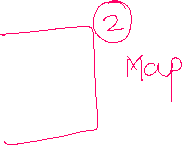 2
Map